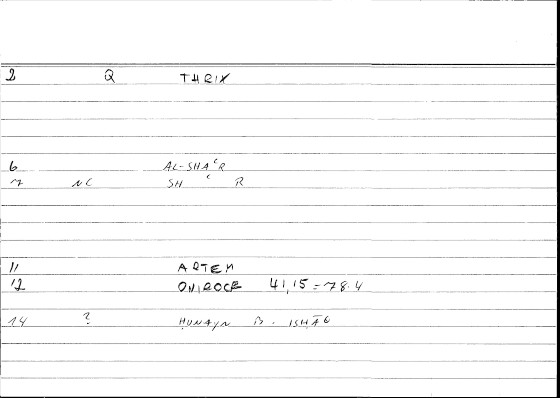 2 Q THRIX
6 AL-SHAʿR
7 NC SH ʿ R
11 ARTEM
12 ONIROCR 41,15 = 78.4
14 ? ḤUNAYN B. ISḤĀQ